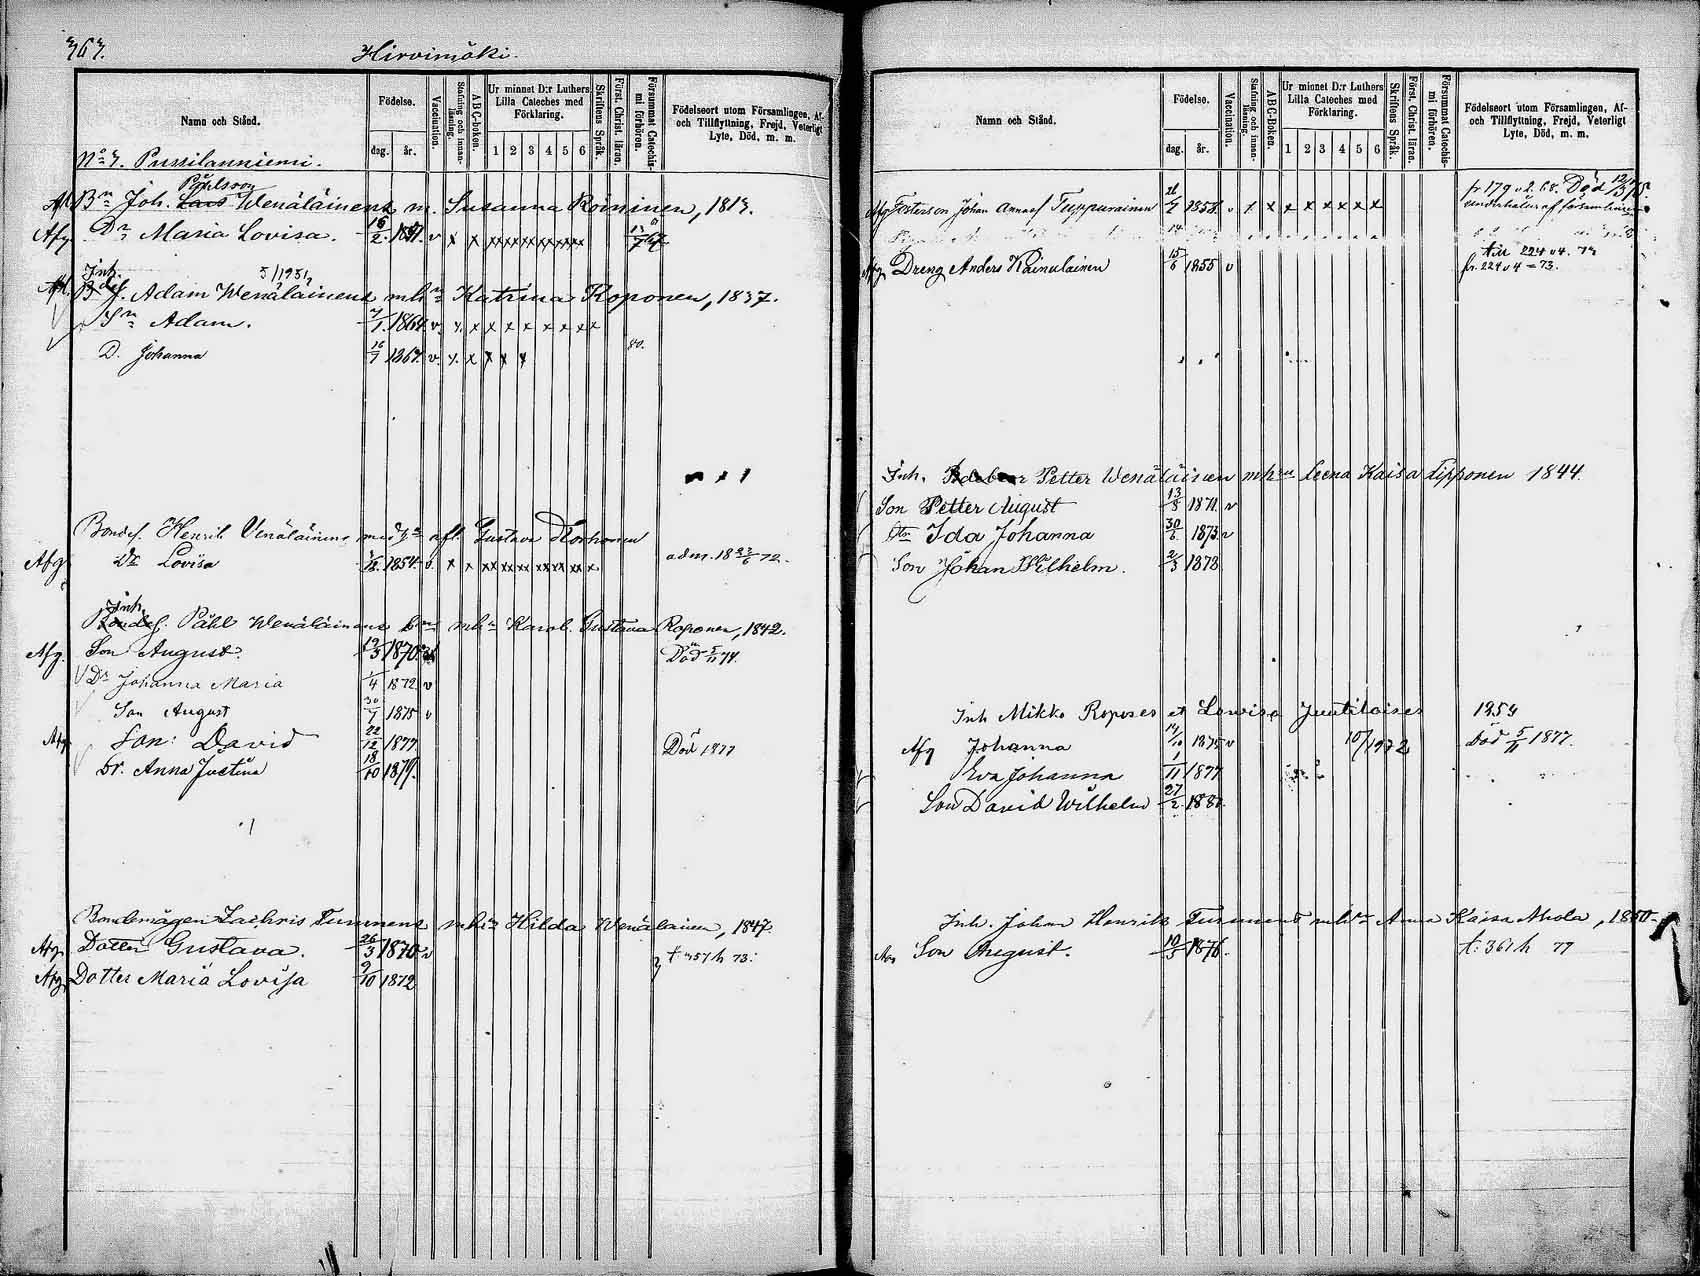 367.
Hirvimäki.
Namn och Stånd.
Födelse.
dag.
år.
Vaccination.
Stafning och innan-läsning.
A B C-boken.
Ur minnet D:r Luthers Lilla Cateches med Förklaring.
1 2 3 4 5 6
Skriftens Språk.
Först. Christ. läran.
Försummat Catechis-mi förhören.
Födelseort utom Församlingen, Af- och Tillflyttning, Frejd, Veterligt Lyte, Död, m. m.
No 7. Pussilanniemi.
Påhlsson
Afl. Bn Joh. Lars Wenäläinens m. Susanna Roininen, 1813.
Afg. Dr Maria Lovisa. 16/2 1851. v x x xx xx xx xx xx xx
Inh. 5/1931
Bdes. Adam Wenäläinens mhn Katrina Koponen, 1837.
Sn Adam. 7/1 1864 v. x x x x x x x x x
D. Johanna 16/7 1867. v. x. x x x x 80.
Bondes. Henrik Venäläinens med hn afl. Gustava Korhonen
Afg. Dr Lovisa 1854. v. x x xx xx xx xx xx x adm. 18 23/6 72.
Inh.
Bondes. Påhl Wenäläinens mhn Karol. Gustava Koponen, 1842.
Afg. Son August. 19/3 1870. Död 5/11 74.
Dr Johanna Maria 1/4 1872 v
Son August 30/7 1875 v
Afg. Son: David 22/12 1877. Död 1877
Dr. Anna Justina 18/10 1879.
Bondemågen Zachris Tummens mhn Hilda Wenäläinen, 1847.
Afg. Dotter Gustava. 26/3 1870 v t 357 h 73.
Afg. Dotter Maria Lovisa 9/10 1872
Namn och Stånd.
Födelse.
dag.
år.
Vaccination.
Stafning och innan-läsning.
A B C-Boken.
Ur minnet D:r Luthers Lilla Cateches med Förklaring.
1 2 3 4 5 6
Skriftens Språk.
Först. Christ. läran.
Försummat Catechis-mi förhören.
Födelseort utom Församlingen, Af- och Tillflyttning, Frejd, Veterligt Lyte, Död, m. m.
Afg. Fosterson Johan Tuppurainen 1858. v x x x x x x x x fr 179 v 2. 68. Död
underhålles af församlingen
Till 224 v 4. 73
Afg. Dreng Anders Kainulainen 15/6 1855 v fr. 224 v 4 = 73.
Inh. Petter Wenäläinen mhru Leena Kaisa Lipponen 1844.
Son Petter August 13/8 1871. v
Dr Ida Johanna 30/6 1873. v
Son Johan Wilhelm. 2/3 1878
Inh Mikko Roposes et Lowisa Juutilaises 1854
Afg Johanna 14/10 1875 v 10/1972 Död 5/11 1877.
Eva Johanna 1/11 1877
Son David Wilhelm 27/2 1880.
Inh. Johan Henrik Tummens mhru Anna Kaisa Ahola, 1850
Son August. 10/5 1876. t: 361 h 77